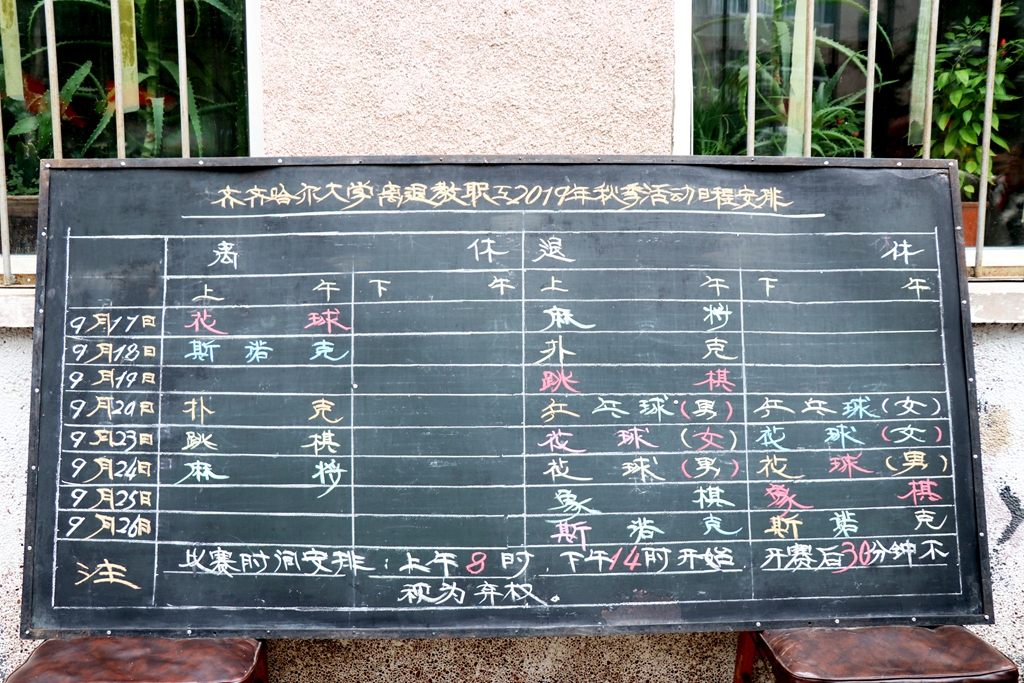 齐齐哈尔大学离退教职工2019年秋季活动日程安排
离 休 退 休
上 午 下 午 上 午 下 午
9月17日 花 球 麻 将
9月18日 斯 诺 克 扑 克
9月19日 跳 棋
9月20日 扑 克 乒 乓 球(男) 乒 乓 球(女)
9月23日 跳 棋 花 球 (女) 花 球 (女)
9月24日 麻 将 花 球(男) 花 球(男)
9月25日 象 棋 象 棋
9月26日 斯 诺 克 斯 诺 克
注 比赛时间安排:上午8时 下午14时开始 开赛后30分钟不
视为弃权。